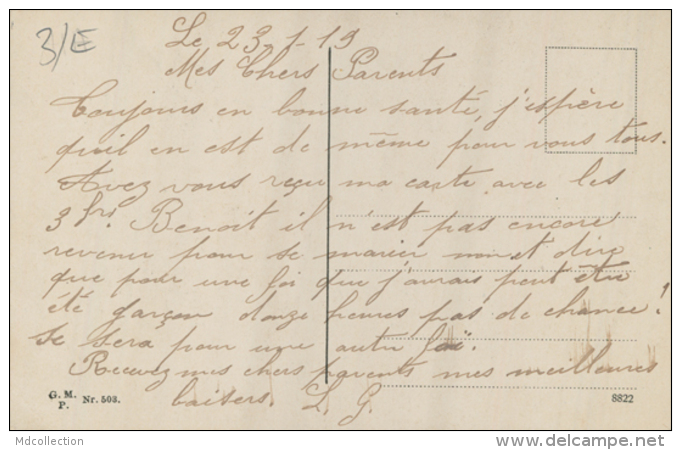 3/E
Le 23-1-19
Mes Chers Parents
Toujours en bonne santé, j'espère
qu'il en est de même pour vous tous.
Avez vous reçu ma carte avec les
3 frs. Benoit il n'est pas encore
revenu pour se marier et dire
que pour une foi que j'aurais peut être
été garçon donze heures pas de chance!
se sera pour une autre foi.
Recevez mes chers parents mes meilleures
baisers. L. G.
G. M.
P. Nr. 503.
8822
Mdcollection
www.delcampe.net